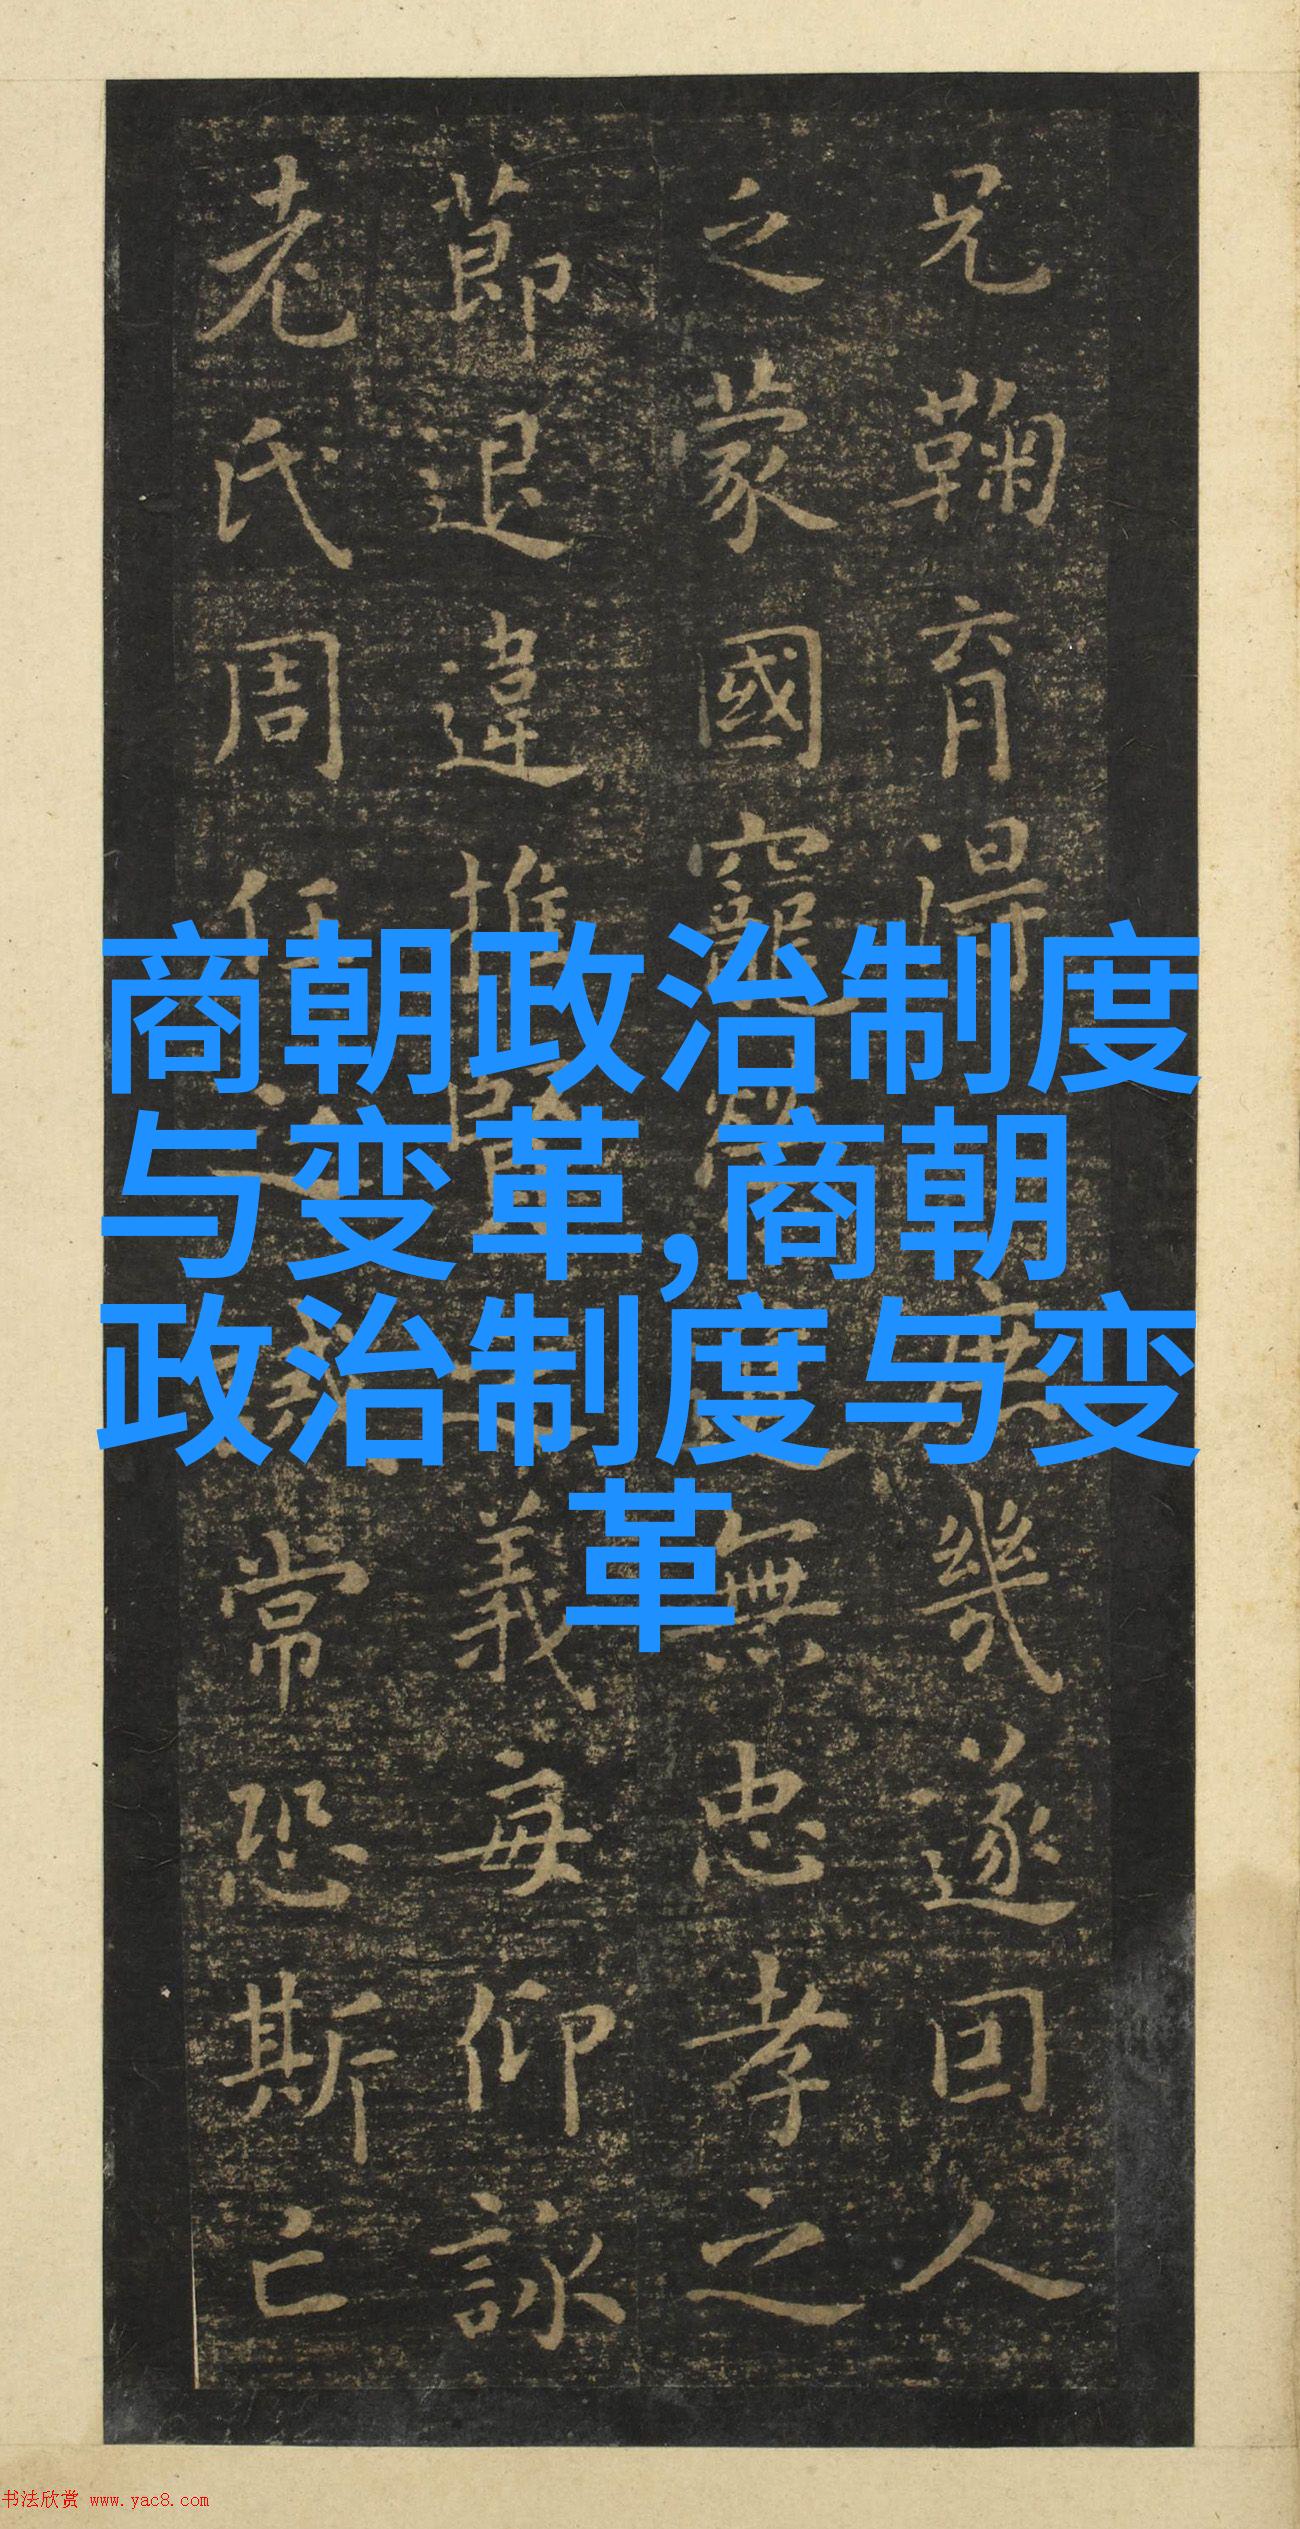 兄鞠育得庶幾遂囙人
之蒙國寵榮無忠孝之
莭退違推賢義每仰詠
老氏周任之誡常恐斯亡
商朝政治制度
与变革,商朝
政治制度与变
革
书法欣赏 www.yac8.com